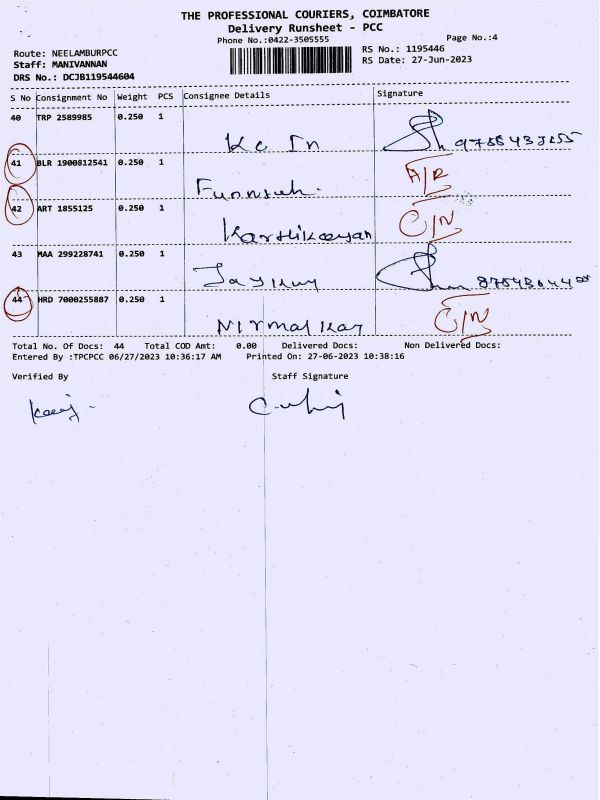 THE PROFESSIONAL COURIERS, COIMBATORE
Delivery Runsheet - PCC
Phone No.:0422-3505555
Page No.:4
Route: NEELAMBURPCC
RS No.: 1195446
Staff: MANIVANNAN
RS Date: 27-Jun-2023
DRS No.: DCJB119544604
S No Consignment No Weight PCS Consignee Details Signature
40 TRP 2589985 0.250 1
Kc In
41 BLR 1900812541 0.250 1 A/R
42 ART 1855125 0.250 1 C/N
Karthikeyan
43 MAA 299228741 0.250 1
44 HRD 7000255887 0.250 1 C/N
Nirmal Kar
Total No. Of Docs: 44 Total COD Amt: 0.00 Delivered Docs: Non Delivered Docs:
Entered By :TPCPCC 06/27/2023 10:36:17 AM Printed On: 27-06-2023 10:38:16
Verified By Staff Signature